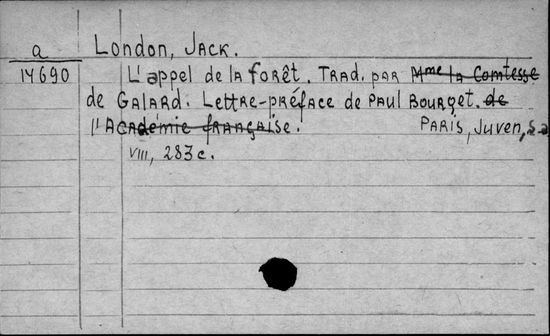 a London, Jack.
14690 L'appel de la forêt. Trad. par Mme la Comtesse
de Galard. Lettre-préface de Paul Bourget. de
l'Académie française. Paris, Juven, s.a
VIII, 283 c.